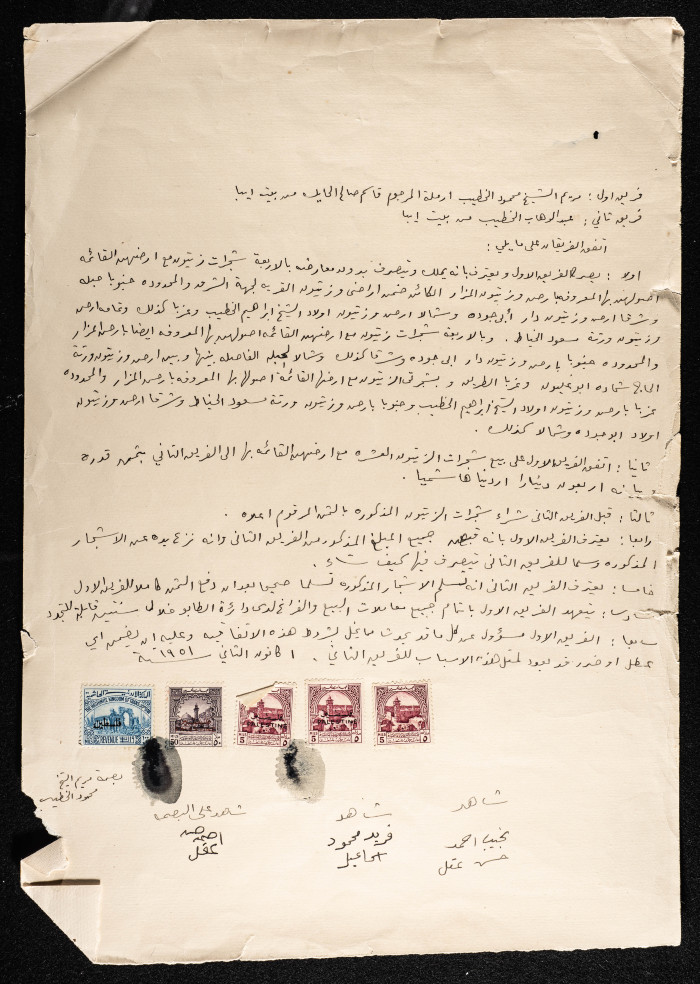 فريق اول : مريم الشيخ محمود الخطيب ارملة المرحوم قاسم صالح الحايك من بيت إيبا
فريق ثاني : عبد الوهاب الخطيب من بيت إيبا
اتفق الفريقان على ما يلي :
اولا : يصرح الفريق الاول ويعترف بانه يملك ويتصرف بدون معارضه بالاربعة شجرات زيتون مع ارضهن القائمه
اصولهن بها المعروفه بارض وزيتون المزار الكائن ضمن اراضي وزيتون القريه لجهة الشرق والمحدوده جنوبا حبله
وشرقا ارض وزيتون دار ابي جوده وشمالا ارض وزيتون اولاد الشيخ ابراهيم الخطيب وغربا كذلك وتمامه ارض
وزيتون ورثة مسعود الخياط . وبالاربعة شجرات زيتون مع ارضهن القائمه اصولهن بها المعروفه ايضا بارض المزار
والمحدوده جنوبا بارض وزيتون دار ابي جوده وشرقا كذلك وشمالا الحبله الفاصله بينها وبين ارض وزيتون ورثة
الحاج شحاده ابو عيون وغربا الطريق و بشرقي الزيتون مع ارضها القائمة اصولها بها المعروفه بارض المزار والمحدوده
غربا بارض وزيتون اولاد الشيخ ابراهيم الخطيب وجنوبا بارض وزيتون ورثة مسعود الخياط وشرقا ارض وزيتون
اولاد ابو جوده وشمالا كذلك .
ثانيا : اتفق الفريق الاول على بيع شجرات الزيتون العشره مع ارضهن القائمه بها الى الفريق الثاني بثمن قدره
اربعون دينارا اردنيا هاشميا .
ثالثا : قبل الفريق الثاني شراء شجرات الزيتون المذكوره بالثمن المرقوم اعلاه
رابعا : يعترف الفريق الاول بانه قبض جميع المبلغ المذكور من الفريق الثاني وانه نزع يده عن الاشجار
المذكوره وسلمها للفريق الثاني يتصرف فيها كيف شاء .
خامسا : يعترف الفريق الثاني انه تسلم الاشجار المذكوره تسلما صحيحا بعد ان دفع الثمن كاملا للفريق الاول
سادسا : يتعهد الفريق الاول باتمام جميع معاملات البيع والفراغ لدى دائرة الطابو خلال سنتين قابله للتجدد
سابعا : الفريق الاول مسؤول عن كل ما قد يحدث مما يخل بشروط هذه الاتفاقيه وعليه ان يضمن اي
عطل او ضرر قد يعود لمثل هذه الاسباب للفريق الثاني . ١ كانون الثاني سنة ١٩٥١
THE HASHEMITE KINGDOM OF JORDAN
فلسطين
REVENUE
50 ٥٠
PALESTINE
5 ٥
PALESTINE
5 ٥
5 ٥
بصمة مريم الشيخ
محمود الخطيب
شاهد على البصمه
عقل
شاهد
فريد محمود
اسماعيل
شاهد
نجيب احمد
حسن عقل